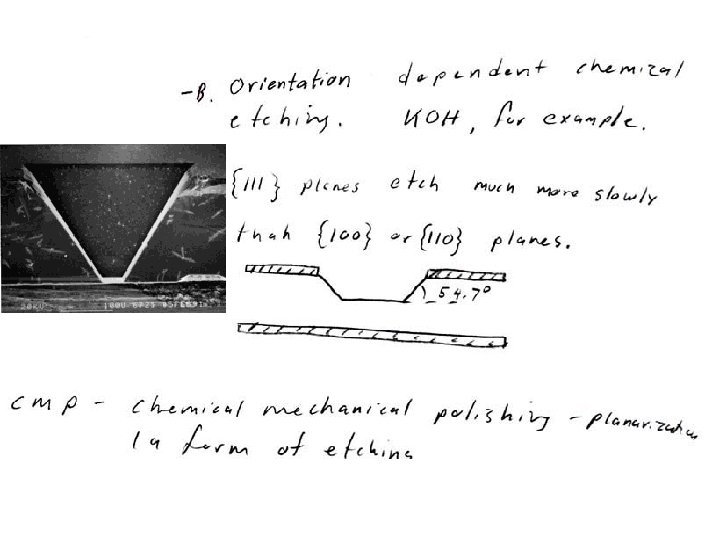 -B. Orientation dependent chemical
etching. KOH, for example.
{111} planes etch much more slowly
than {100} or {110} planes.
54.7°
20KU 180U
CMP - chemical mechanical polishing - planarization
(a form of etching